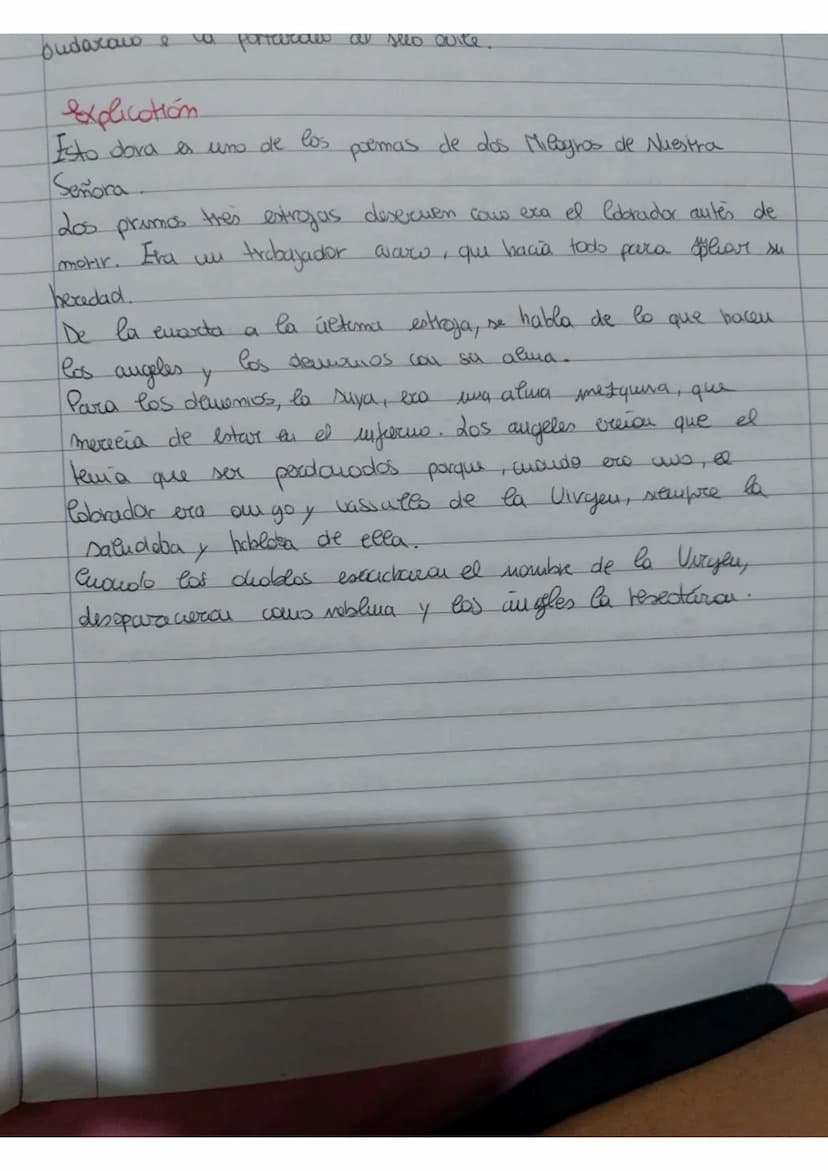 e la al suo
Explicatión
Esto dora es uno de los poemas de dos Milagros de Nuestra
Señora.
Los primos tres estrofas descruen como era el labrador antés de
morir. Era un trabajador avaro, que hacia todo para su
heredad.
De la cuarta a la última estrofa, se habla de lo que hacen
los angeles y los demonios con su alma.
Para los demonios, la suya, era una alma mezquina, que
merecia de estar en el infierno. Los angeles creian que el
tenia que ser perdonodos porque, cuando era vivo, el
labrador era amigo y vassallos de la Virgen, siempre la
saludaba y hablaba de ella.
Cuando los diablos escucharon el nombre de la Virgen,
desaparacieron como neblina y los angeles la